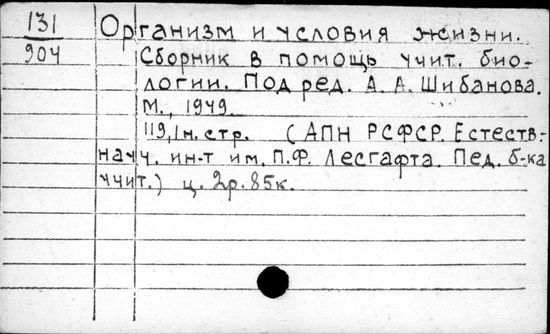 131
904
Организм и условия жизни.
Сборник в помощь учит. био-
логии. Под ред. А. А. Шибанова.
М., 1949.
119, 1 н. стр. (АПН РСФСР. Естеств.-
науч. ин-т им. П.Ф. Лесгафта. Пед. б-ка
учит.) ц. 2р. 85к.